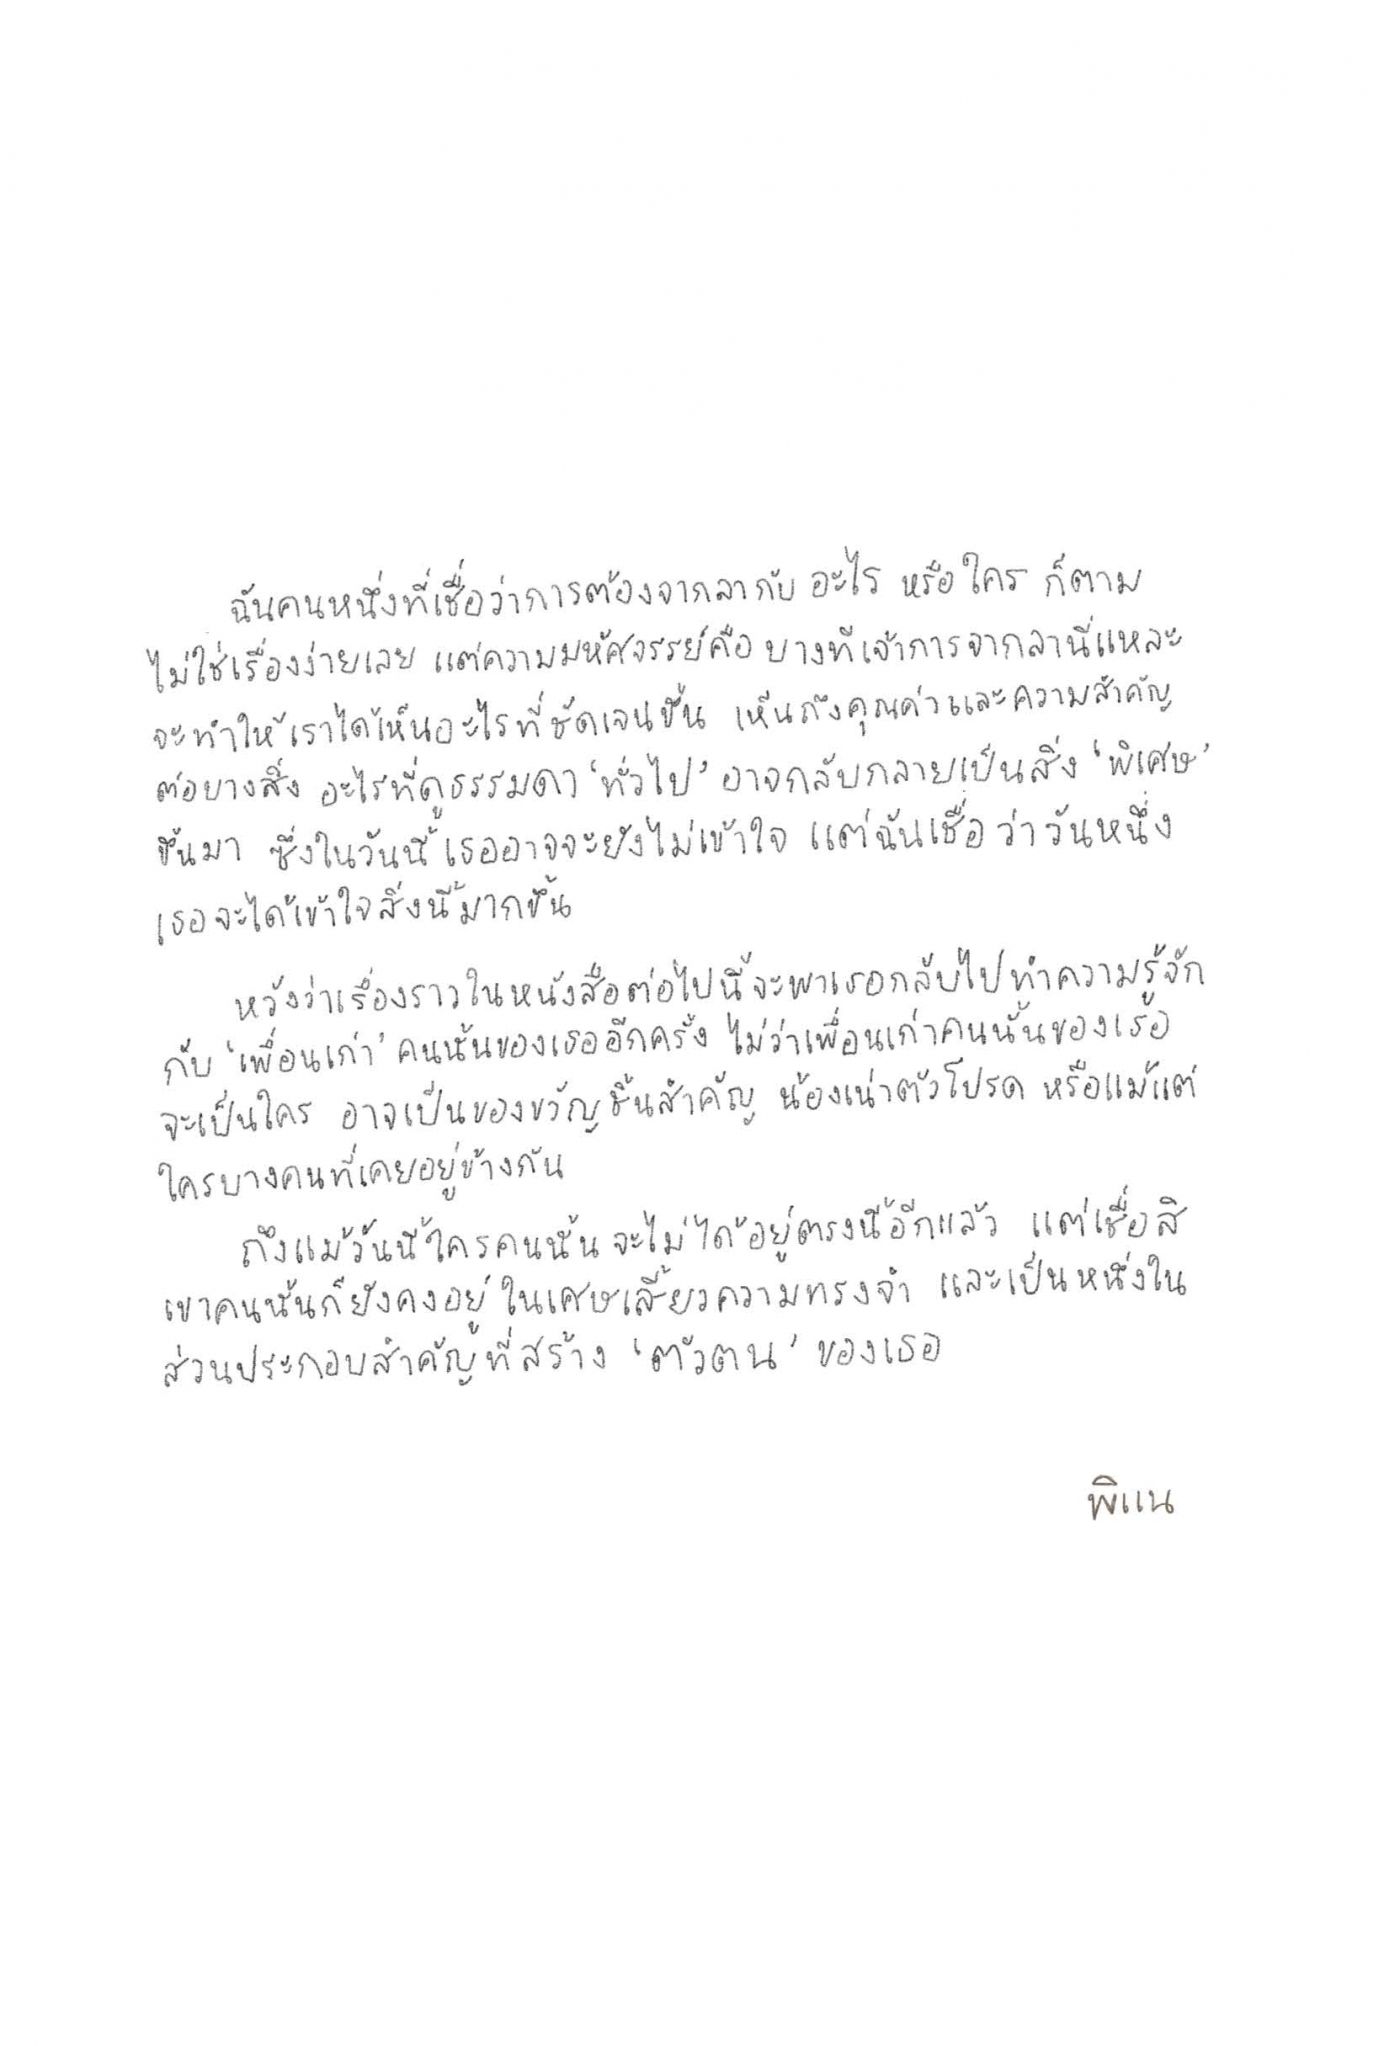 ฉันคนหนึ่งที่เชื่อว่าการต้องจากลากับ อะไร หรือ ใคร ก็ตาม
ไม่ใช่เรื่องง่ายเลย แต่ความมหัศจรรย์คือ บางทีเจ้าการจากลานี่แหละ
จะทำให้เราได้เห็นอะไรที่ชัดเจนขึ้น เห็นถึงคุณค่าและความสำคัญ
ต่อบางสิ่ง อะไรที่ดูธรรมดา 'ทั่วไป' อาจกลับกลายเป็นสิ่ง 'พิเศษ'
ขึ้นมา ซึ่งในวันนี้ เธออาจจะยังไม่เข้าใจ แต่ฉันเชื่อ ว่าวันหนึ่ง
เธอจะได้เข้าใจสิ่งนี้มากขึ้น
หวังว่าเรื่องราวในหนังสือต่อไปนี้จะพาเธอกลับไปทำความรู้จัก
กับ 'เพื่อนเก่า' คนนั้นของเธออีกครั้ง ไม่ว่าเพื่อนเก่าคนนั้นของเธอ
จะเป็นใคร อาจเป็นของขวัญชิ้นสำคัญ น้องเน่าตัวโปรด หรือแม้แต่
ใครบางคนที่เคยอยู่ข้างกัน
ถึงแม้วันนี้ใครคนนั้นจะไม่ได้อยู่ตรงนี้อีกแล้ว แต่เชื่อสิ
เขาคนนั้นก็ยังคงอยู่ ในเศษเสี้ยวความทรงจำ และเป็นหนึ่งใน
ส่วนประกอบสำคัญที่สร้าง 'ตัวตน' ของเธอ
พิแน